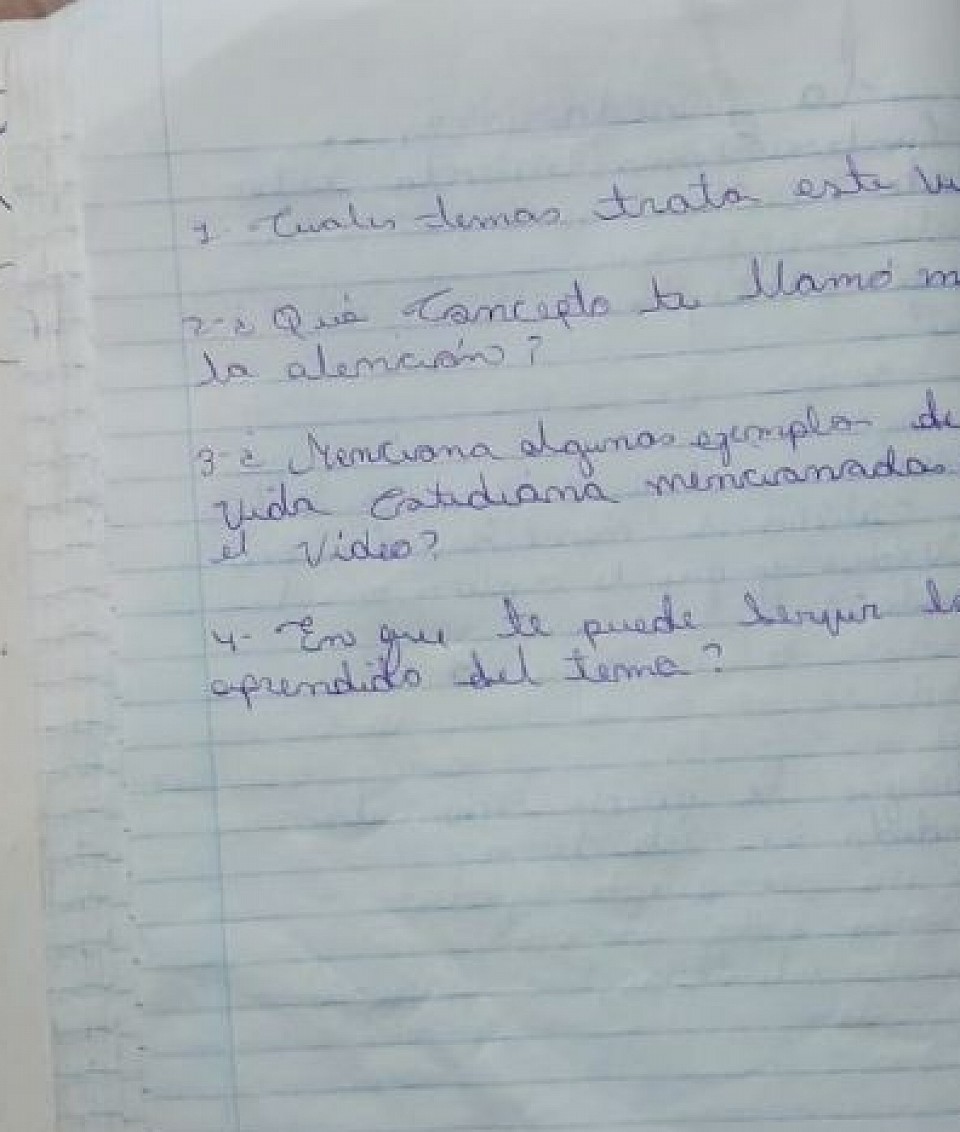 1- Cuales temas trata este
2-¿ Qué Concepto te llamó
la atención?
3-¿ Menciona algunos ejemplos de
vida Cotidiana mencionados
el Video?
4- En que te puede servir lo
aprendido del tema?